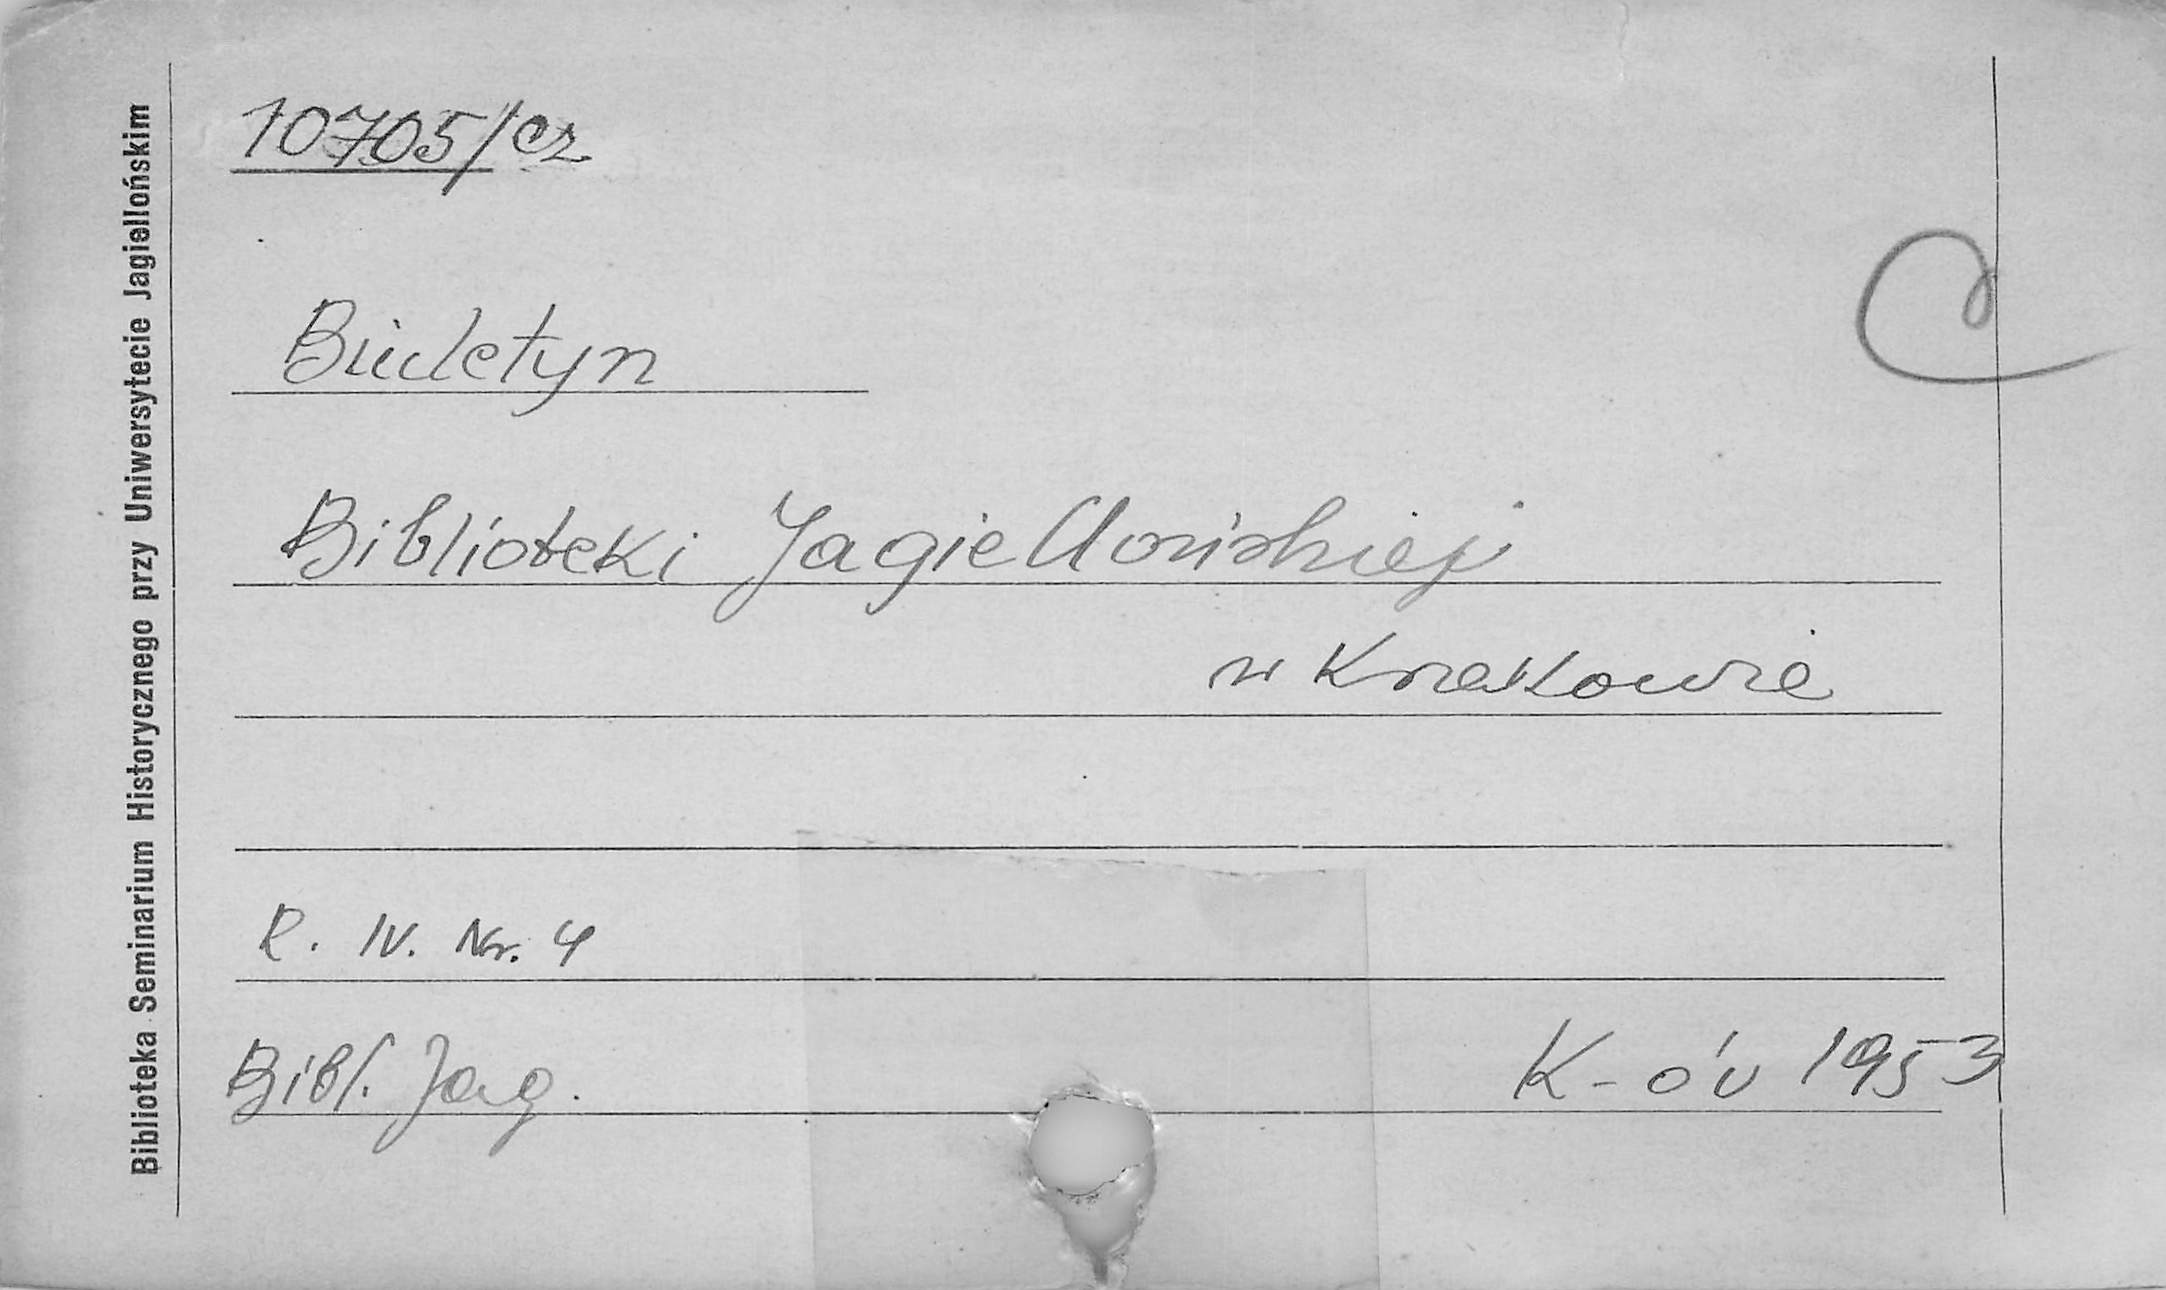 10705/cz
C
Biuletyn
Biblioteki Jagiellońskiej
w Krakowie
R. IV. Nr. 4
Bibl. Jag.
K-ów 1953
Biblioteka Seminarium Historycznego przy Uniwersytecie Jagiellońskim